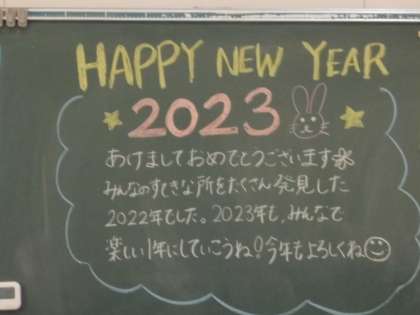 HAPPY NEW YEAR
2023
あけましておめでとうございます
みんなのすてきな所をたくさん発見した
2022年でした。2023年も、みんなで
楽しい1年にしていこうね!今年もよろしくね